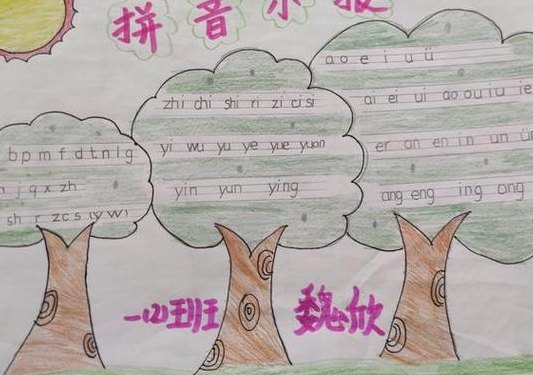 拼音小报
b p m f d t n l g
j q x zh
sh r z c s (y w)
zhi chi shi ri zi ci si
yi wu yu ye yue yuan
yin yun ying
a o e i u ü
ai ei ui ao ou iu ie
er an en in un ün
ang eng ing ong
一(2)班
魏欣